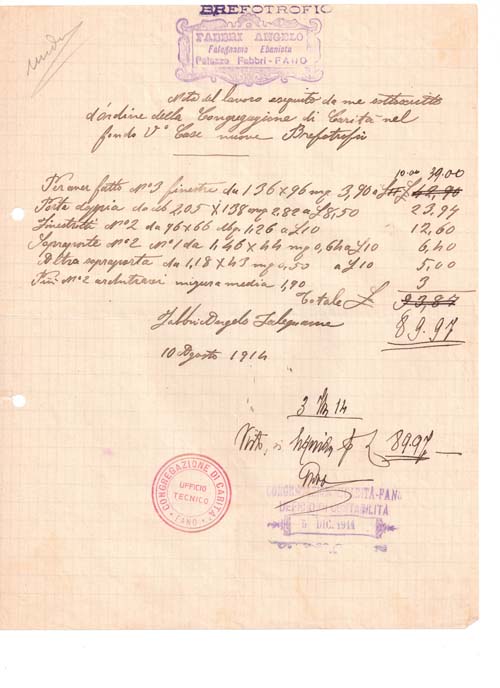 BREFOTROFIO
FABBRI ANGELO
Falegname Ebanista
Palazzo Fabbri - FANO
Nota del lavoro eseguito da me sottoscritto
d'ordine della Congregazione di Carità nel
fondo V° Case nuove Brefotrofio
10.00 39.00
Per aver fatto N° 3 finestre da 136 x 96 mq 3,90 a £ 11 £ 42,90
Porta doppia da 2,05 x 138 mq 2.82 a £ 8,50 23,97
Finestrati N° 2 da 96 x 66 Mq 1,26 a £ 10 12,60
Sopraporte N° 2 N° 1 da 1,46 x 44 mq 0,64 a £ 10 6,40
Altra sopraporta da 1,18 x 43 mq 0,50 a £ 10 5,00
Più N° 2 architravi misura media 1,90 3
Totale £ 93,87
Fabbri Angelo Falegname 89.97
10 Agosto 1914
3 14
Visto, si liquida £ 89.97
CONGREGAZIONE DI CARITÀ
UFFICIO
TECNICO
FANO
CONGREGAZIONE CARITÀ-FANO
CONTABILITÀ
5 DIC. 1914